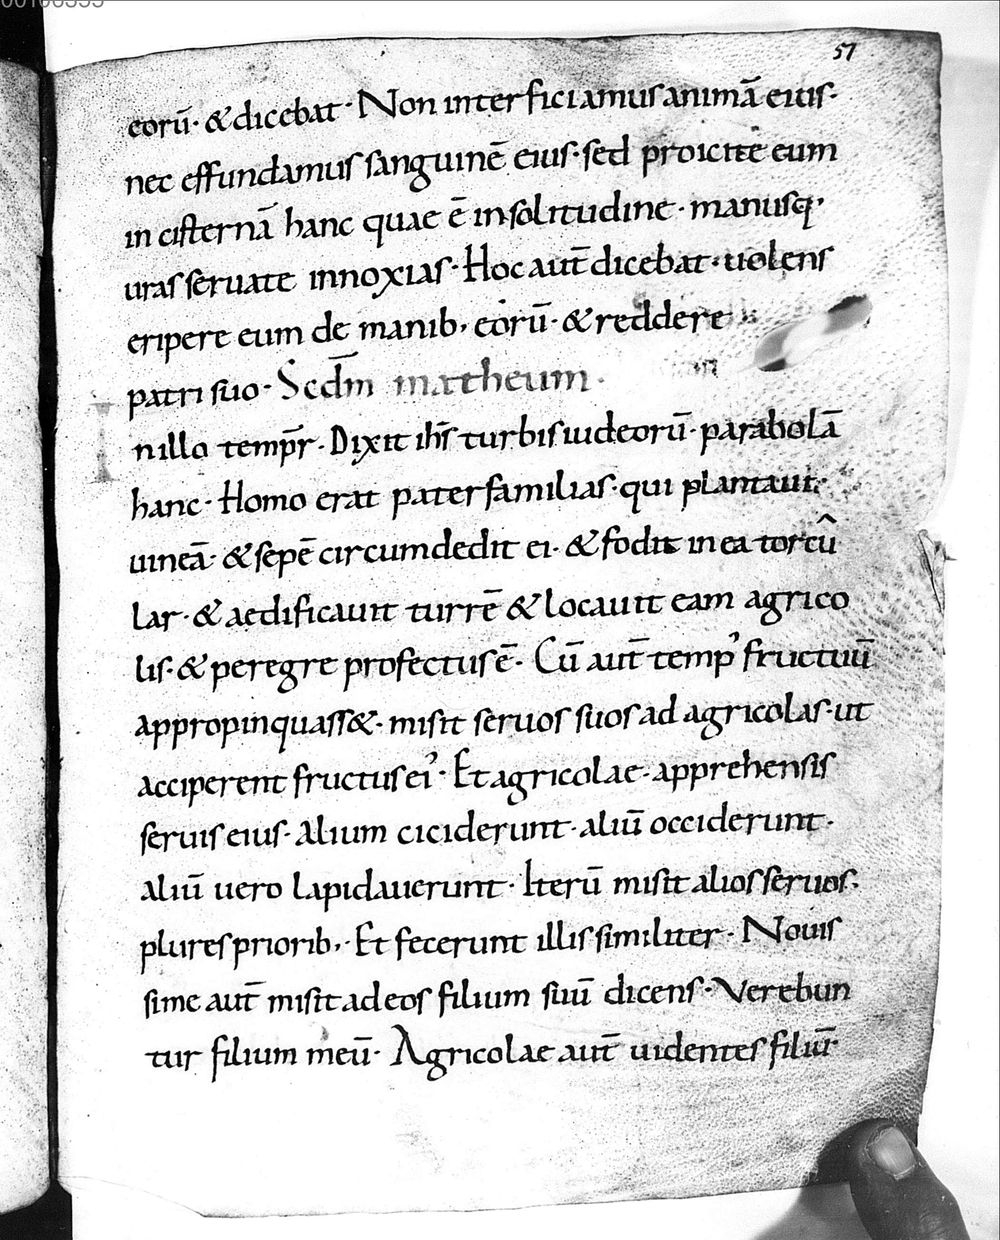 57
eorū· &dicebat· Non interficiamus animā eius·
nec effundamus sanguinē eius· sed proicite eum
in cisternā hanc quae ē in solitudine· manusq·
uras seruate innoxias· Hoc aut̄ dicebat· uolens
eripere eum de manib, eorū· & reddere
patri suo· Scdm̄ matheum·
Inillo tempr̄· Dixit ihs̄ turbis iudeorū· parabolā
hanc· Homo erat paterfamilias· qui plantauit
uineā· & sepē circumdedit ei· & fodit in ea torcu
lar· & aedificauit turrē & locauit eam agrico
lis· & peregre profectus ē· Cū aut̄ temp' fructuū
appropinquass&· misit seruos suos ad agricolas· ut
acciperent fructus ei'· Et agricolae· apprehensis
seruis eius· alium ciciderunt· aliū occiderunt·
aliū uero lapidauerunt· Iterū misit alios seruos·
plures priorib,· Et fecerunt illis similiter· Nouis
sime aut̄ misit ad eos filium suū dicens· Verebun
tur filium meū· Agricolae aut̄ uidentes filiū